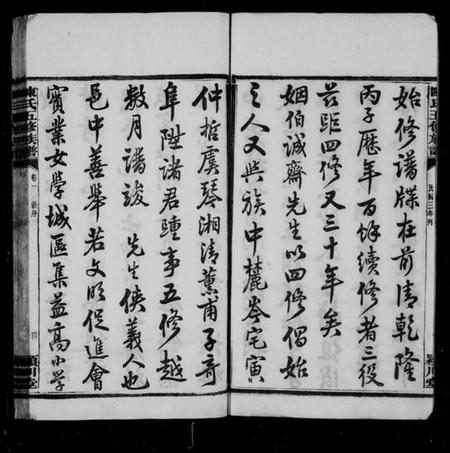 始修譜牒在前清乾隆
丙子歷年百餘續修者三役
茲距四修又三十年矣
姻伯誠齋先生以四修倡始
之人又與族中麓峯宅寅
仲哲虞琴湘清薰甫子奇
阜陞諸君踵事五修越
數月譜竣 先生俠義人也
邑中善舉若文明促進會
實業女學城區集益高小學
陳氏五修族譜
卷一 新序
四
潁川堂